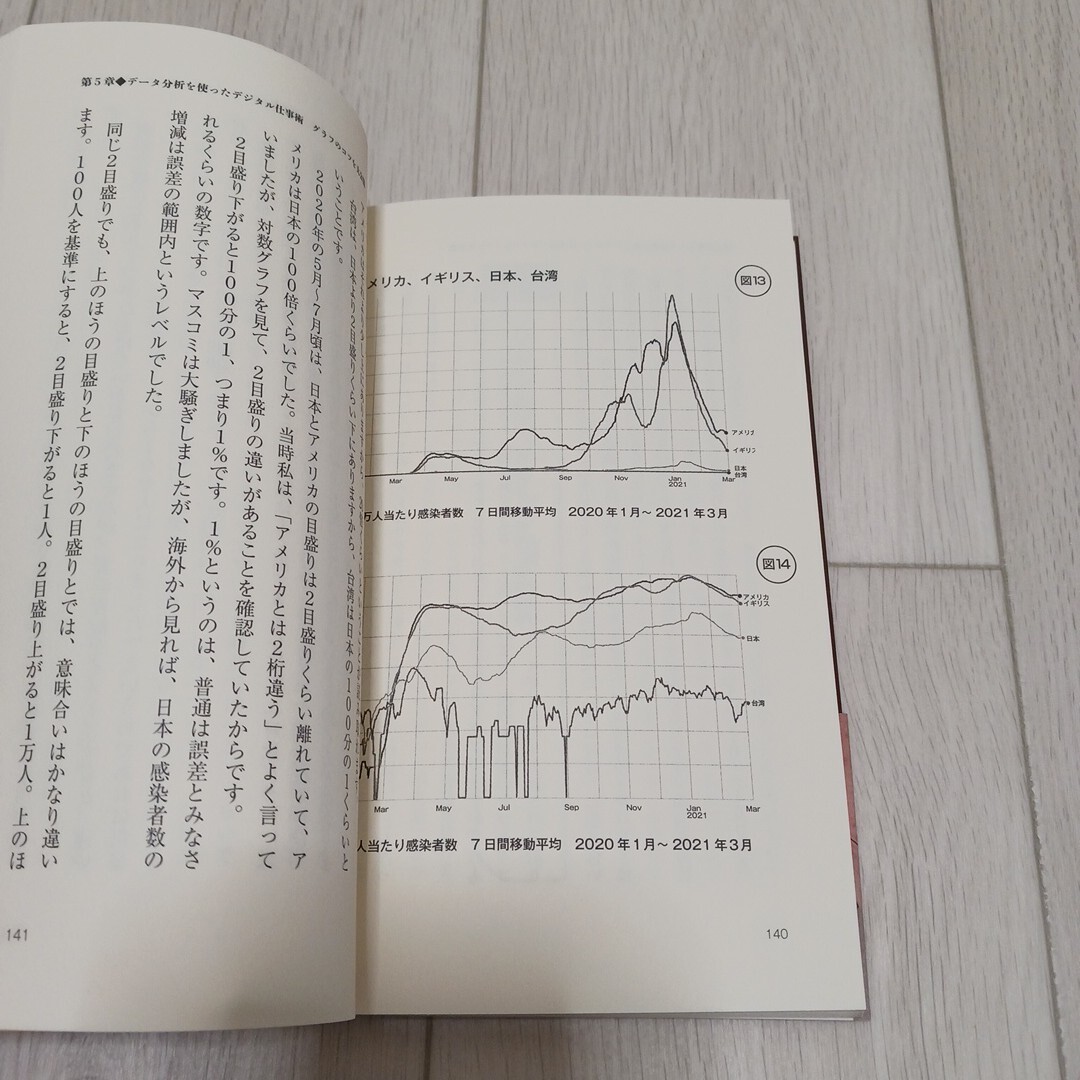 メリカ、イギリス、日本、台湾
図13
アメリカ
イギリス
日本
台湾
Mar
May
Jul
Sep
Nov
Jan
2021
Mar
万人当たり感染者数　7日間移動平均　2020年1月〜2021年3月
図14
アメリカ
イギリス
日本
台湾
Mar
May
Jul
Sep
Nov
Jan
2021
Mar
人当たり感染者数　7日間移動平均　2020年1月〜2021年3月
140
第5章◆データ分析を使ったデジタル仕事術　グラフのコツを
台湾は、日本より2目盛りくらい下にありますから、台湾は日本の100分の1くらいと
いうことです。
2020年の5月〜7月頃は、日本とアメリカの目盛りは2目盛りくらい離れていて、ア
メリカは日本の100倍くらいでした。当時私は、「アメリカとは2桁違う」とよく言って
いましたが、対数グラフを見て、2目盛りの違いがあることを確認していたからです。
2目盛り下がると100分の1、つまり1%です。1%というのは、普通は誤差とみなさ
れるくらいの数字です。マスコミは大騒ぎしましたが、海外から見れば、日本の感染者数の
増減は誤差の範囲内というレベルでした。
同じ2目盛りでも、上のほうの目盛りと下のほうの目盛りとでは、意味合いはかなり違い
ます。100人を基準にすると、2目盛り下がると1人。2目盛り上がると1万人。上のほ
141